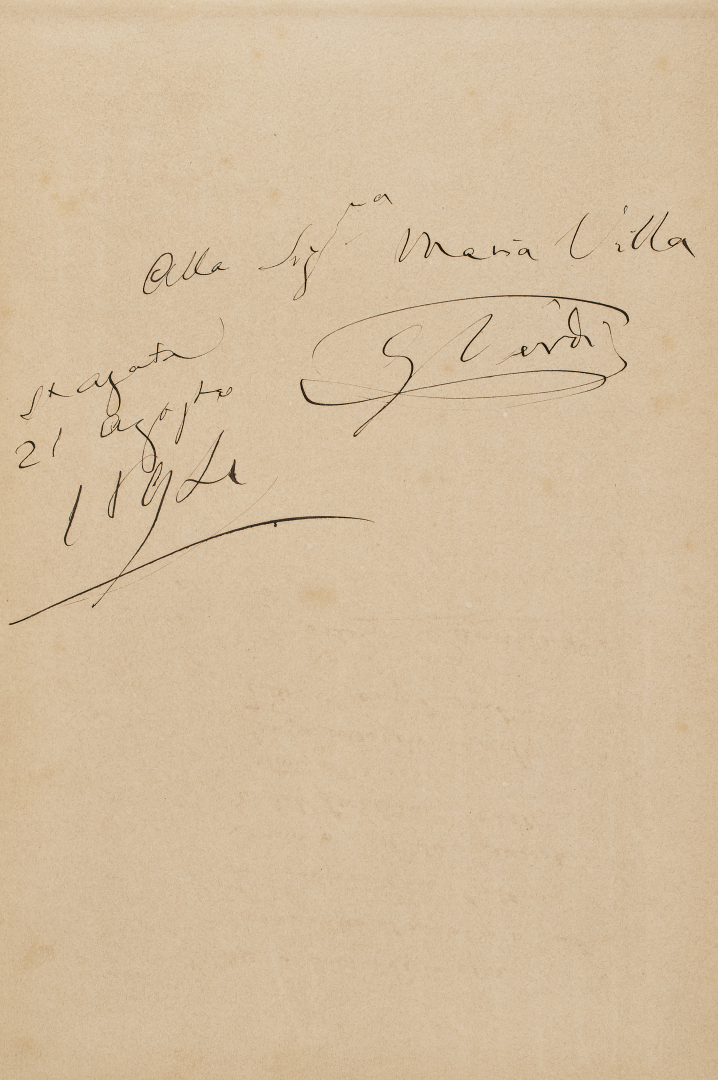 Alla Sigra Maria Villa
G Verdi
St Agata
21 Agosto
1894